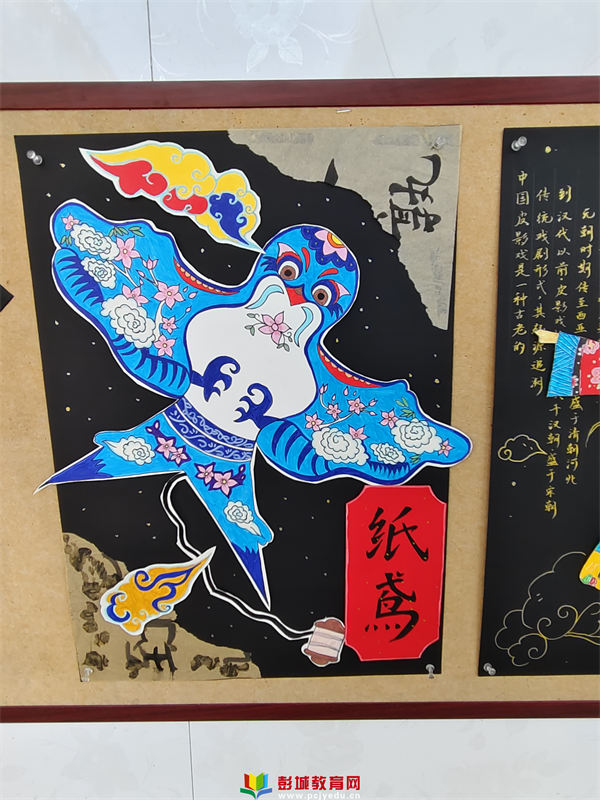 纸鸢
中国皮影戏是一种古老的
传统戏剧形式，其起源追溯
到汉代以前皮影戏
于汉朝，盛于宋朝
时期传至西亚
盛于清朝河北
彭城教育网
www.pcjyedu.cn